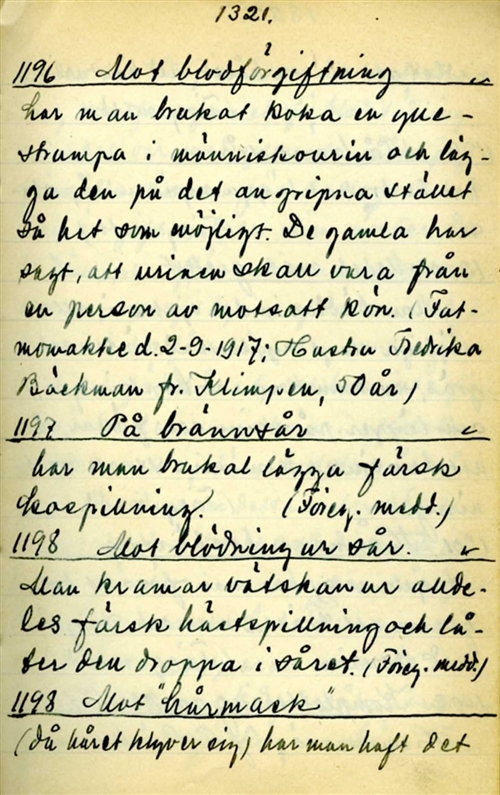 1321.
1196 Mot blodförgiftning "
har man brukat koka en ylle-
strumpa i människourin och läg-
ga den på det angripna stället
så het som möjligt. De gamla har
sagt, att urinen skall vara från
en person av motsatt kön. (Fat-
momakke d. 2-9-1917; Hustru Fredrika
Bäckman fr. Klimpen, 50 år)
1197 På brännsår "
har man brukat lägga färsk
kospillning. (Föreg. medd.)
1198 Mot blödning ur sår. "
Man kramar vätskan ur allde-
les färsk hästspillning och lå-
ter den droppa i såret. (Föreg. medd.)
1198 Mot "hårmack"
(då håret klyver sig) har man haft det